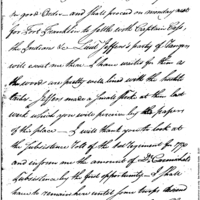 in good Order – and shall proceed on monday next
for Fort Franklin to settle with Captain
the Indians &c – Jeffers's party of Rangers
will meet me there I have written for them as
the woods are pretty well lined with the
Order. Jeffers made a small at them last
week which you will perceive by the papers
of the place – I will thank you to look at
the Subsistence Roll of the last regiment for 1790
and inform me the amount of Dr. Carmichael's
Subsistence by the first opportunity – I shall
have to remain here until some troops